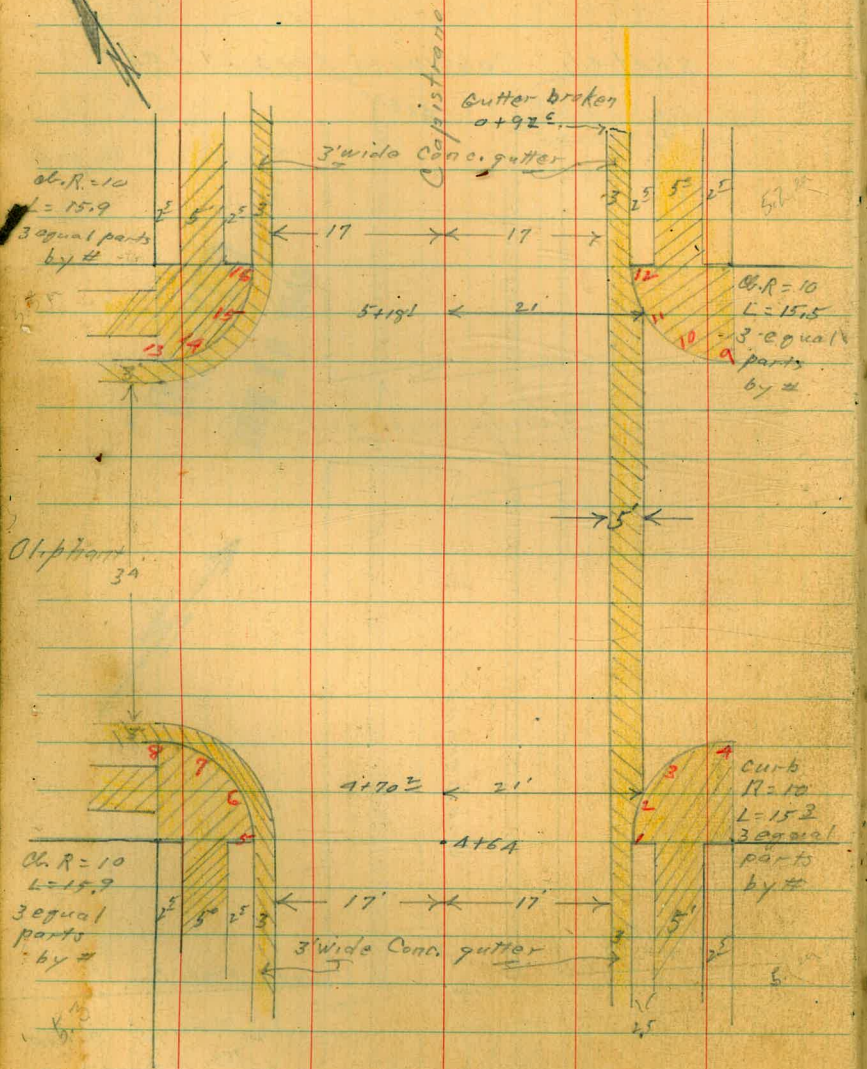 Capistrano
Gutter broken
0+92
3' wide Conc. gutter
Cb. R. = 10
L = 15.9
3 equal parts
by #
2⁵ 5' 2⁵ 3'
17
17
3 2⁵ 5⁰ 2⁵
5.2
16
15
14
13
3'
5+18
21'
12
11
10
9
Cb. R = 10
L = 15.5
3 equal
parts
by #
5'
Oliphant
34
8
7
6
5
4+70²
21'
4+64
4
3
2
1
curb
R = 10
L = 15.3
3 equal
parts
by #
Cb. R = 10
L = 15.9
3 equal
parts
by #
2⁵ 5⁰ 2⁵ 3
17'
17'
3 5' 2⁵
3' Wide Conc. gutter
2.5